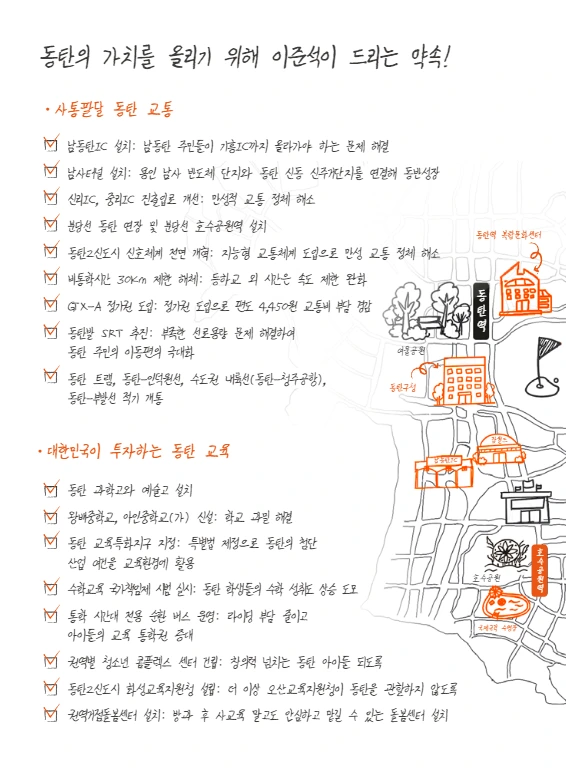 동탄의 가치를 올리기 위해 이준석이 드리는 약속!
• 사통팔달 동탄 교통
남동탄IC 설치: 남동탄 주민들이 기흥IC까지 올라가야 하는 문제 해결
남사터널 설치: 용인 남사 반도체 단지와 동탄 신동 신주거단지를 연결해 동반성장
신리IC, 중리IC 진출입로 개선: 만성적 교통 정체 해소
분당선 동탄 연장 및 분당선 호수공원역 설치
동탄2신도시 신호체계 전면 개혁: 지능형 교통체계 도입으로 만성 교통 정체 해소
비통학시간 30Km 제한 해제: 등하교 외 시간은 속도 제한 완화
GTX-A 정기권 도입: 정기권 도입으로 편도 4,450원 교통비 부담 경감
동탄발 SRT 추진: 부족한 선로용량 문제 해결하여
동탄 주민의 이동편의 극대화
동탄 트램, 동탄-인덕원선, 수도권 내륙선(동탄-청주공항),
동탄-부발선 적기 개통
• 대한민국이 투자하는 동탄 교육
동탄 과학고와 예술고 설치
왕배중학교, 아인중학교(가) 신설: 학교 과밀 해결
동탄 교육특화지구 지정: 특별법 제정으로 동탄의 첨단
산업 여건을 교육환경에 활용
수학교육 국가책임제 시범 실시: 동탄 학생들의 수학 성취도 상승 도모
통학 시간대 전용 순환 버스 운영: 라이딩 부담 줄이고
아이들의 교육 통학권 증대
권역별 청소년 콤플렉스 센터 건립: 창의력 넘치는 동탄 아이들 되도록
동탄2신도시 화성교육지원청 설립: 더 이상 오산교육지원청이 동탄을 관할하지 않도록
권역거점돌봄센터 설치: 방과 후 사교육 말고도 안심하고 맡길 수 있는 돌봄센터 설치
동탄역 복합문화센터
동탄역
여울공원
동탄구청
호수공원
호수공원역